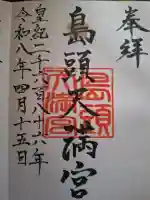 奉拝
島頭天満宮
島頭天満宮
皇紀二千六百八十六年
令和八年四月十五日